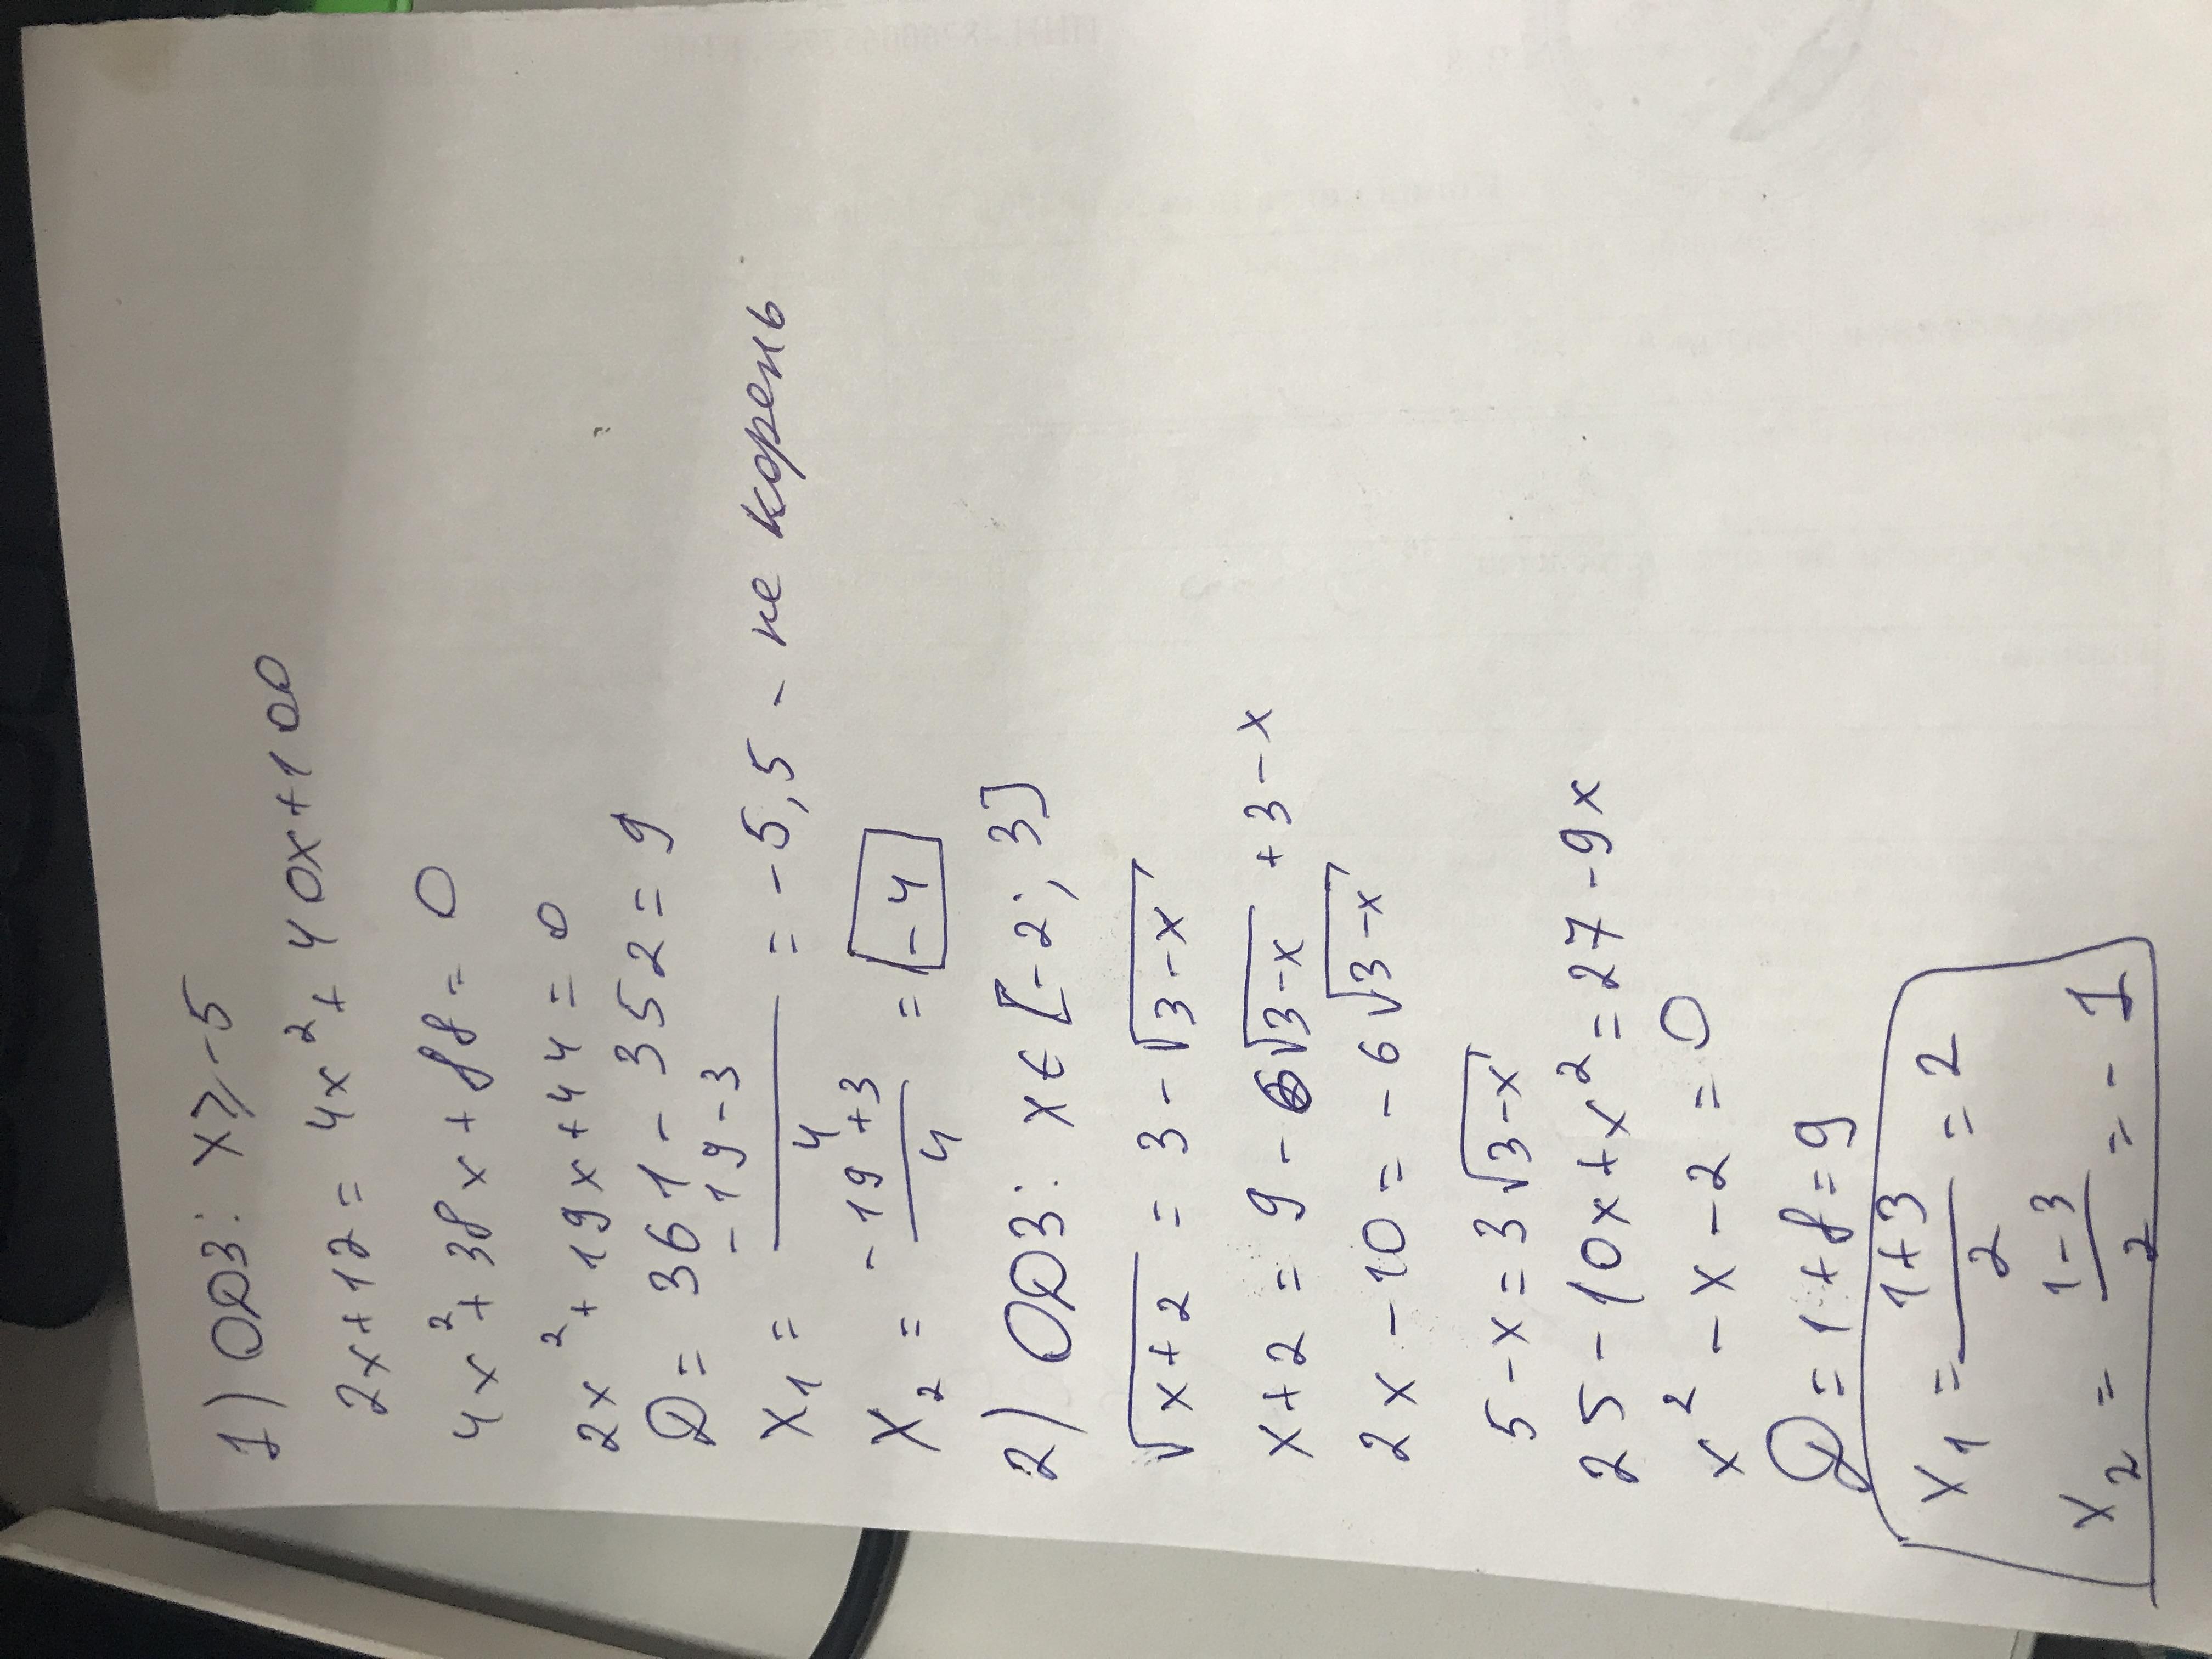 1) ОДЗ: x ⩾ -5
2x+12 = 4x² + 40x+100
4x² + 38x + 88 = 0
2x² + 19x + 44 = 0
D = 361 - 352 = 9
x₁ = (-19-3)/4 = -5,5 - не корень
x₂ = (-19+3)/4 = -4
2) ОДЗ: x ∈ [-2; 3]
√(x+2) = 3 - √(3-x)
x+2 = 9 - 6√(3-x) + 3 - x
2x - 10 = - 6√(3-x)
5 - x = 3√(3-x)
25 - 10x + x² = 27 - 9x
x² - x - 2 = 0
D = 1 + 8 = 9
x₁ = (1+3)/2 = 2
x₂ = (1-3)/2 = -1